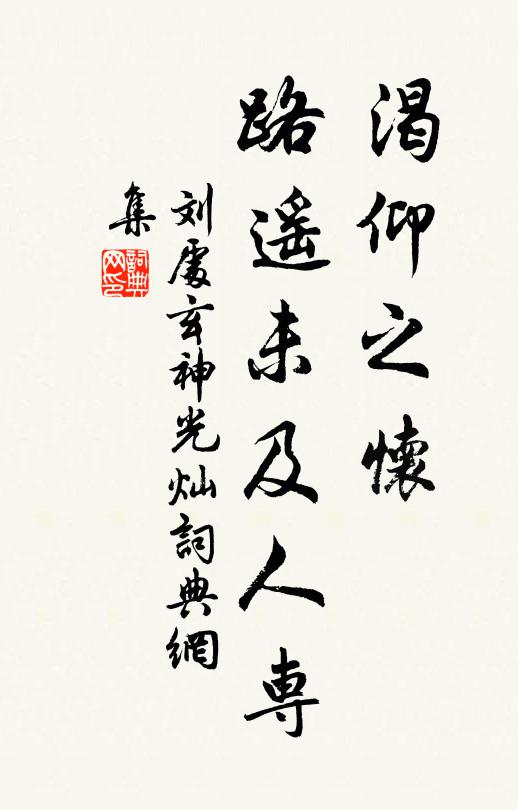 渴仰之懷
路遥未及人専
刘處玄神光灿詞典網
集
詞典
网印